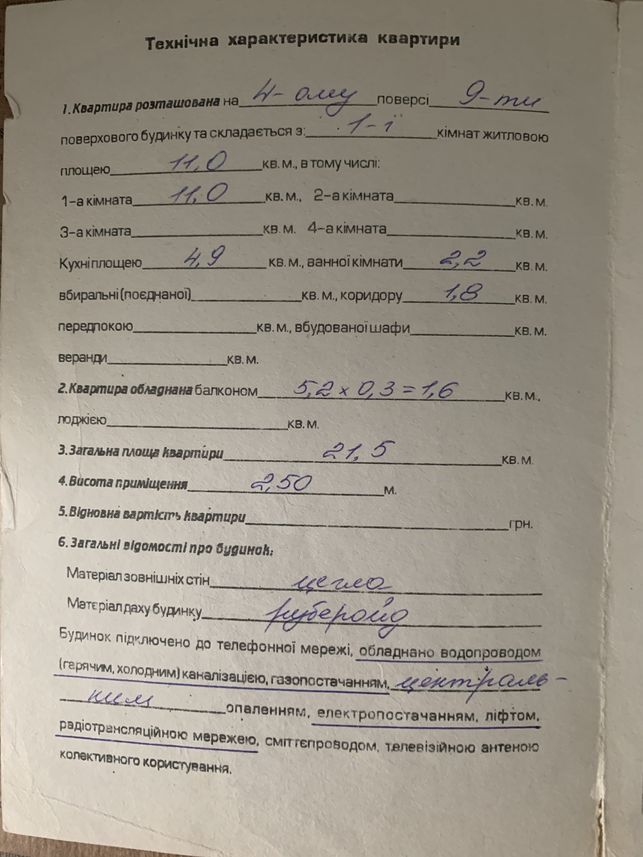 Технічна характеристика квартири
1. Квартира розташована на 4-ому поверсі 9-ти
поверхового будинку та складається з: 1-ї кімнат житловою
площею 11,0 кв. м., в тому числі:
1-а кімната 11,0 кв. м., 2-а кімната кв. м.
3-а кімната кв. м. 4-а кімната кв. м.
Кухні площею 4,9 кв. м., ванної кімнати 2,2 кв. м.
вбиральні (поєднаної) кв. м., коридору 1,8 кв. м.
передпокою кв. м., вбудованої шафи кв. м.
веранди кв. м.
2. Квартира обладнана балконом 5,2 х 0,3 = 1,6 кв. м.,
лоджією кв. м.
3. Загальна площа квартири 21,5 кв. м.
4. Висота приміщення 2,50 м.
5. Відновна вартість квартири грн.
6. Загальні відомості про будинок:
Матеріал зовнішніх стін цегла
Матеріал даху будинку руберойд
Будинок підключено до телефонної мережі, обладнано водопроводом
(герячим, холодним) каналізацією, газопостачанням, централь-
ним опаленням, електропостачанням, ліфтом,
радіотрансляційною мережею, сміттєпроводом, телевізійною антеною
колективного користування.